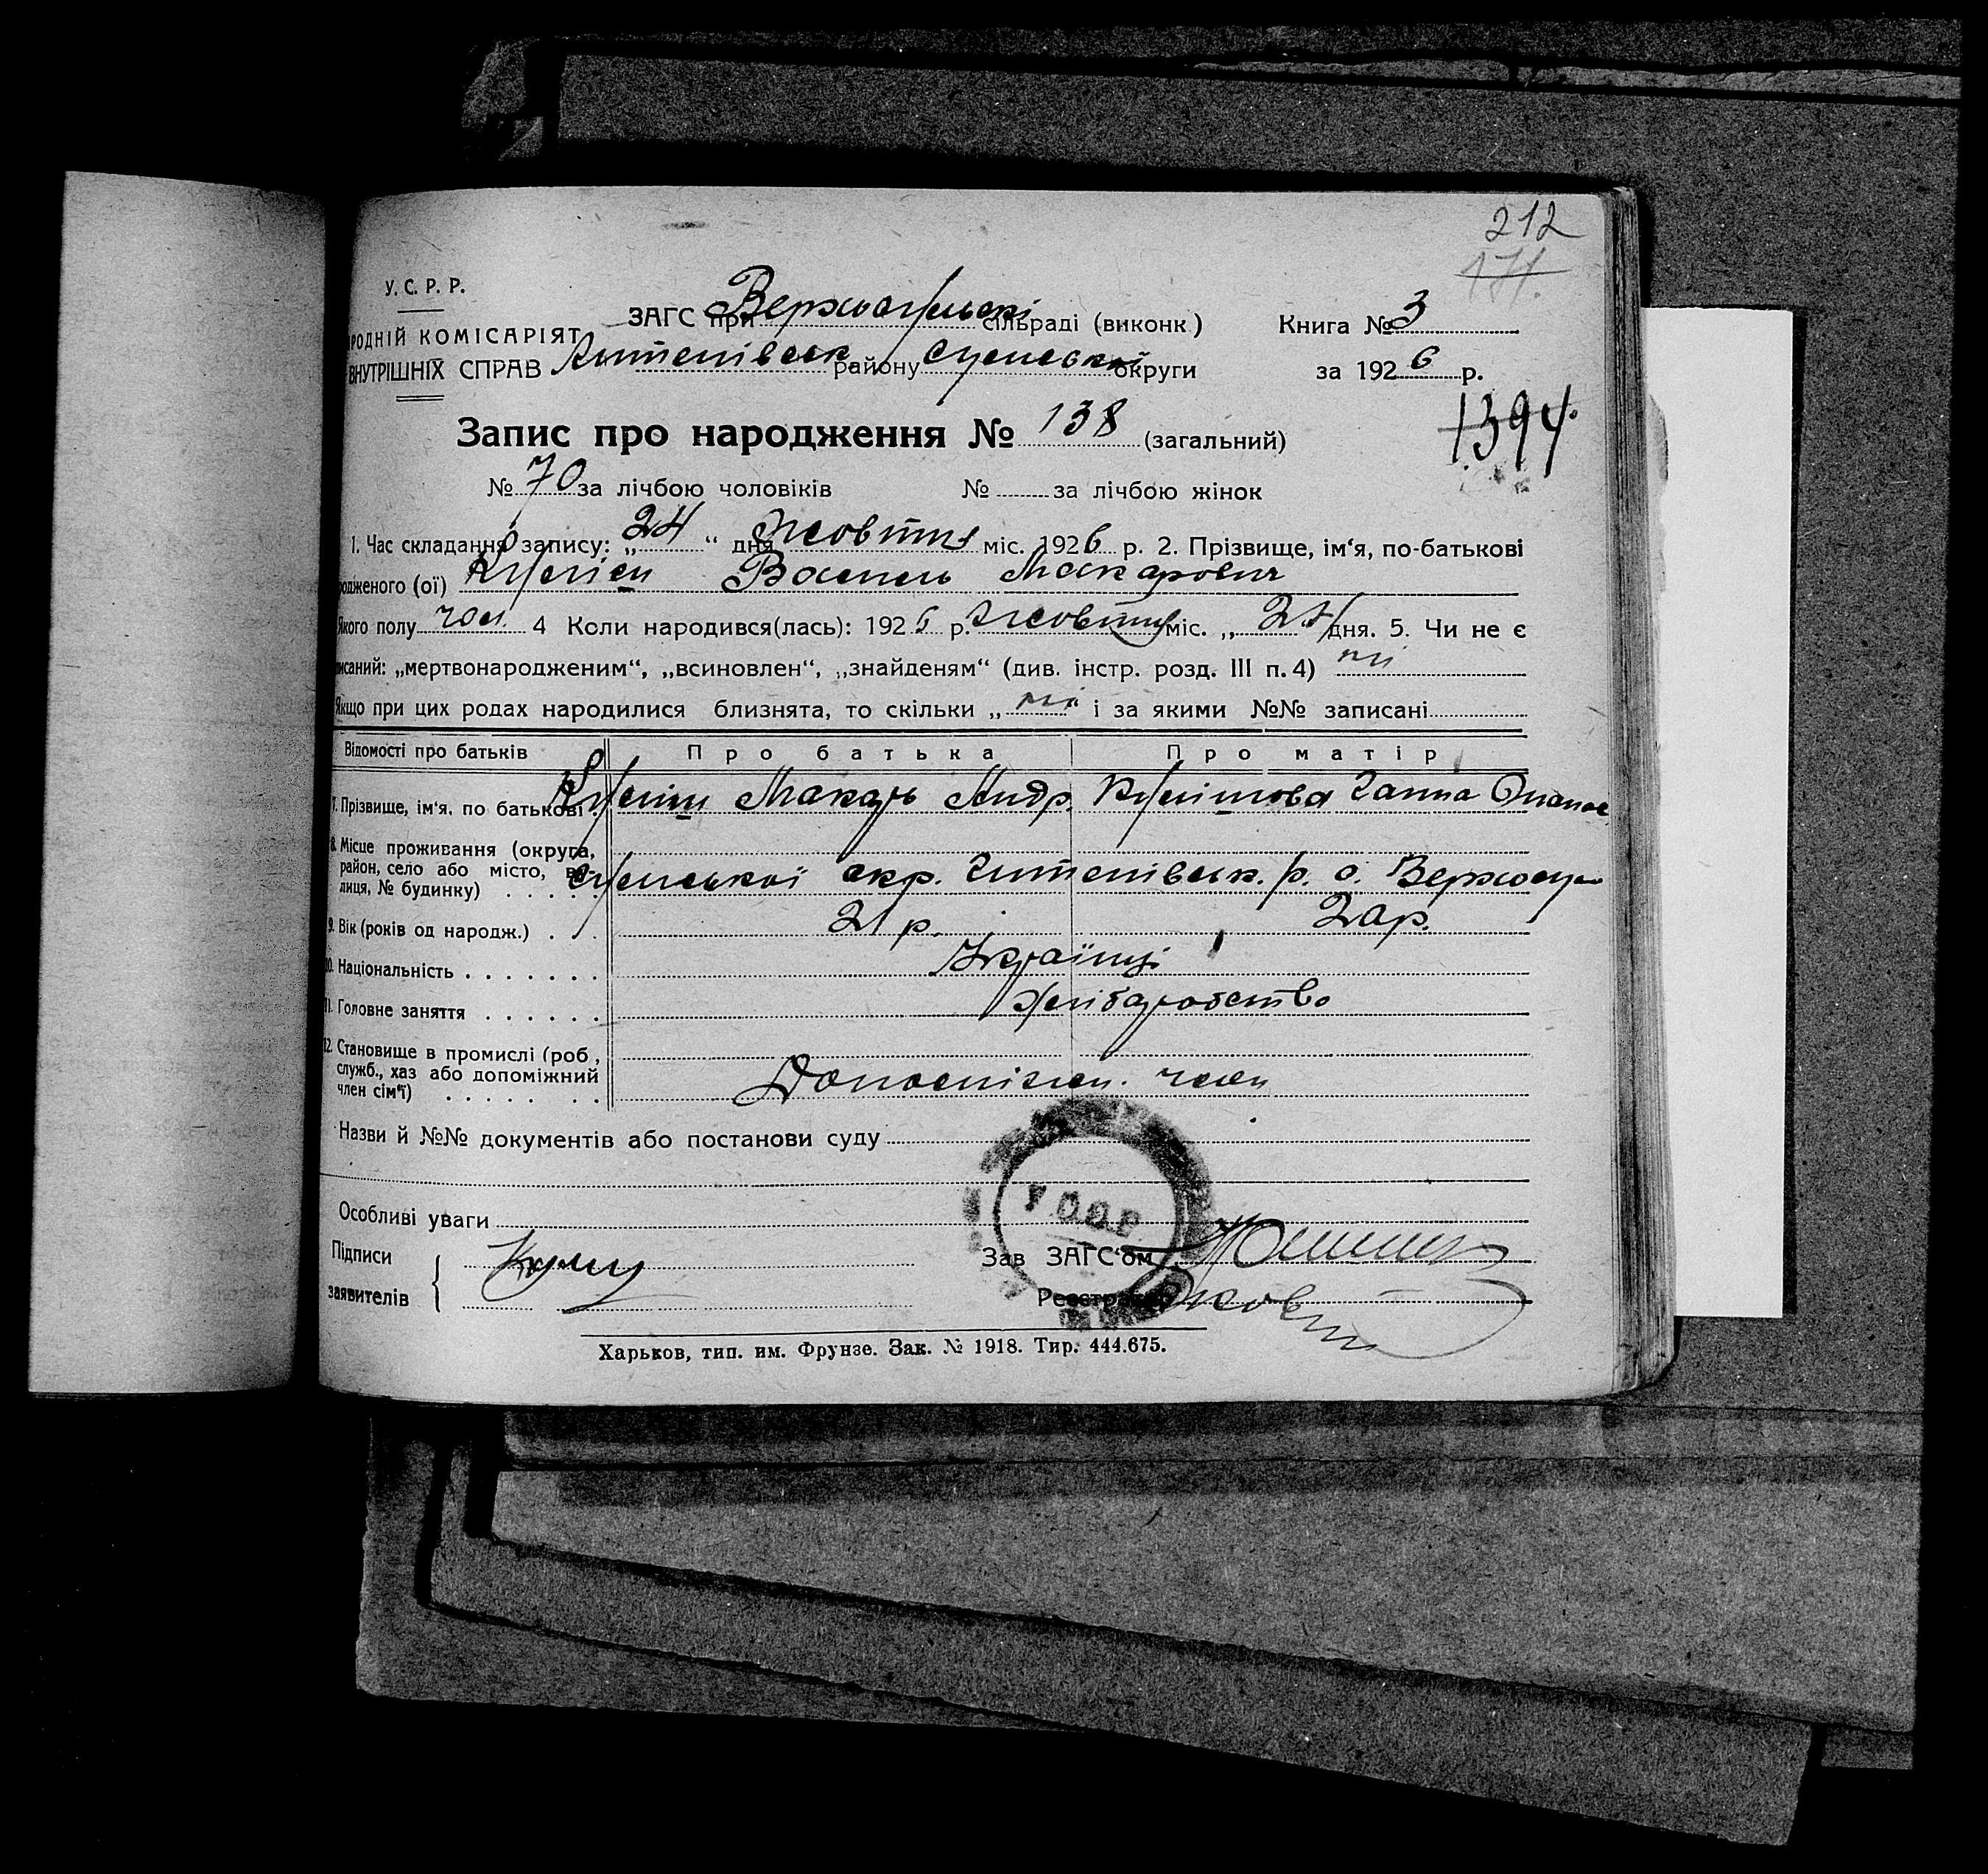 212
171.
У. С. Р. Р.
ЗАГС при Верхосульскі сільраді (виконк) Книга № 3
РОДНІЙ КОМІСАРІЯТ
ВНУТРІШНІХ СПРАВ району Сумської округи за 1926 р.
1394.
Запис про народження № 138 (загальний)
№ 70 за лічбою чоловіків № за лічбою жінок
1. Час складання запису: „24“ дня Жовтня міс. 1926 р. 2. Прізвище, ім‘я, по-батькові
родженого (ої) Василь Макарович
Якого полу чол. 4 Коли народився(лась): 1926 р. Жовтня міс. „24 дня. 5. Чи не є
писаний: „мертвонародженим“, „всиновлен“, „знайденям“ (див. інстр. розд. III п. 4) ні
Якщо при цих родах народилися близнята, то скільки „ні“ і за якими №№ записані
Відомості про батьків Про батька Про матір
7. Прізвище, ім‘я, по батькові Макарь Андр. Ганна Опанас
8. Місце проживання (округа,
район, село або місто, ву
лиця, № будинку) Сумської окр. р. с. Верхосул
9. Вік (років од народж.) 21 р. 20 р.
10. Національність Українці
11. Головне заняття Хліборобство
12. Становище в промислі (роб,
служб., хаз або допоміжний
член сім‘ї) Допоміжн. член
Назви й №№ документів або постанови суду
Особливі уваги
УССР
Підписи
заявителів
Зав ЗАГС‘ом
Реєстратор
Харьков, тип. им. Фрунзе. Зак. № 1918. Тир. 444.675.